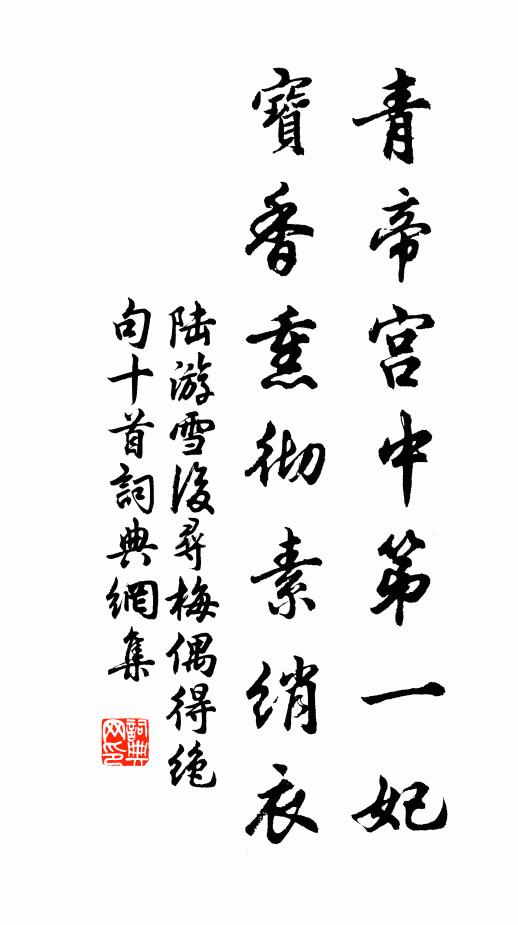 青帝宫中第一妃
寶香熏彻素绡衣
陆游雪後尋梅偶得绝
句十首詞典網集
詞典
网印